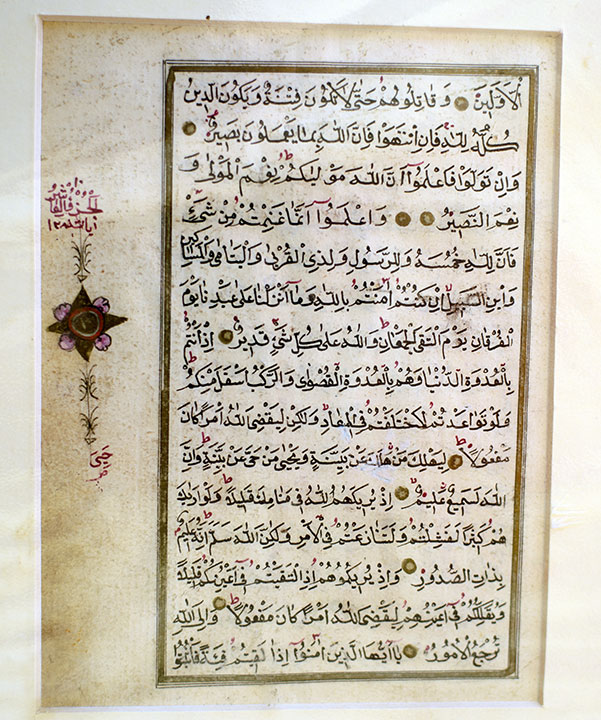 الْأَوَّلِينَ وَقَاتِلُوهُمْ حَتَّى لَا تَكُونَ فِتْنَةٌ وَيَكُونَ الدِّينُ
كُلُّهُ لِلَّهِ فَإِنِ انْتَهَوْا فَإِنَّ اللَّهَ بِمَا يَعْمَلُونَ بَصِيرٌ
وَإِنْ تَوَلَّوْا فَاعْلَمُوا أَنَّ اللَّهَ مَوْلَيكُمْ نِعْمَ الْمَوْلَى وَ
نِعْمَ النَّصِيرُ وَاعْلَمُوا أَنَّمَا غَنِمْتُمْ مِنْ شَيْءٍ
فَأَنَّ لِلَّهِ خُمُسَهُ وَلِلرَّسُولِ وَلِذِي الْقُرْبَى وَالْيَتَامَى وَالْمَسَاكِينِ
وَابْنِ السَّبِيلِ إِنْ كُنْتُمْ آمَنْتُمْ بِاللَّهِ وَمَا أَنْزَلْنَا عَلَى عَبْدِنَا يَوْمَ
الْفُرْقَانِ يَوْمَ الْتَقَى الْجَمْعَانِ وَاللَّهُ عَلَى كُلِّ شَيْءٍ قَدِيرٌ إِذْ أَنْتُمْ
بِالْعُدْوَةِ الدُّنْيَا وَهُمْ بِالْعُدْوَةِ الْقُصْوَى وَالرَّكْبُ أَسْفَلَ مِنْكُمْ
وَلَوْ تَوَاعَدْتُمْ لَاخْتَلَفْتُمْ فِي الْمِيعَادِ وَلَكِنْ لِيَقْضِيَ اللَّهُ أَمْرًا كَانَ
مَفْعُولًا لِيَهْلِكَ مَنْ هَلَكَ عَنْ بَيِّنَةٍ وَيَحْيَى مَنْ حَيَّ عَنْ بَيِّنَةٍ وَإِنَّ
اللَّهَ لَسَمِيعٌ عَلِيمٌ إِذْ يُرِيكَهُمُ اللَّهُ فِي مَنَامِكَ قَلِيلًا وَلَوْ أَرَيكَ
هُمْ كَثِيرًا لَفَشِلْتُمْ وَلَتَنَازَعْتُمْ فِي الْأَمْرِ وَلَكِنَّ اللَّهَ سَلَّمَ إِنَّهُ عَلِيمٌ
بِذَاتِ الصُّدُورِ وَإِذْ يُرِيكُمُوهُمْ إِذِ الْتَقَيْتُمْ فِي أَعْيُنِكُمْ قَلِيلًا
وَيُقَلِّلُكُمْ فِي أَعْيُنِهِمْ لِيَقْضِيَ اللَّهُ أَمْرًا كَانَ مَفْعُولًا وَإِلَى اللَّهِ
تُرْجَعُ الْأُمُورُ يَا أَيُّهَا الَّذِينَ آمَنُوا إِذَا لَقِيتُمْ فِئَةً فَاثْبُتُوا